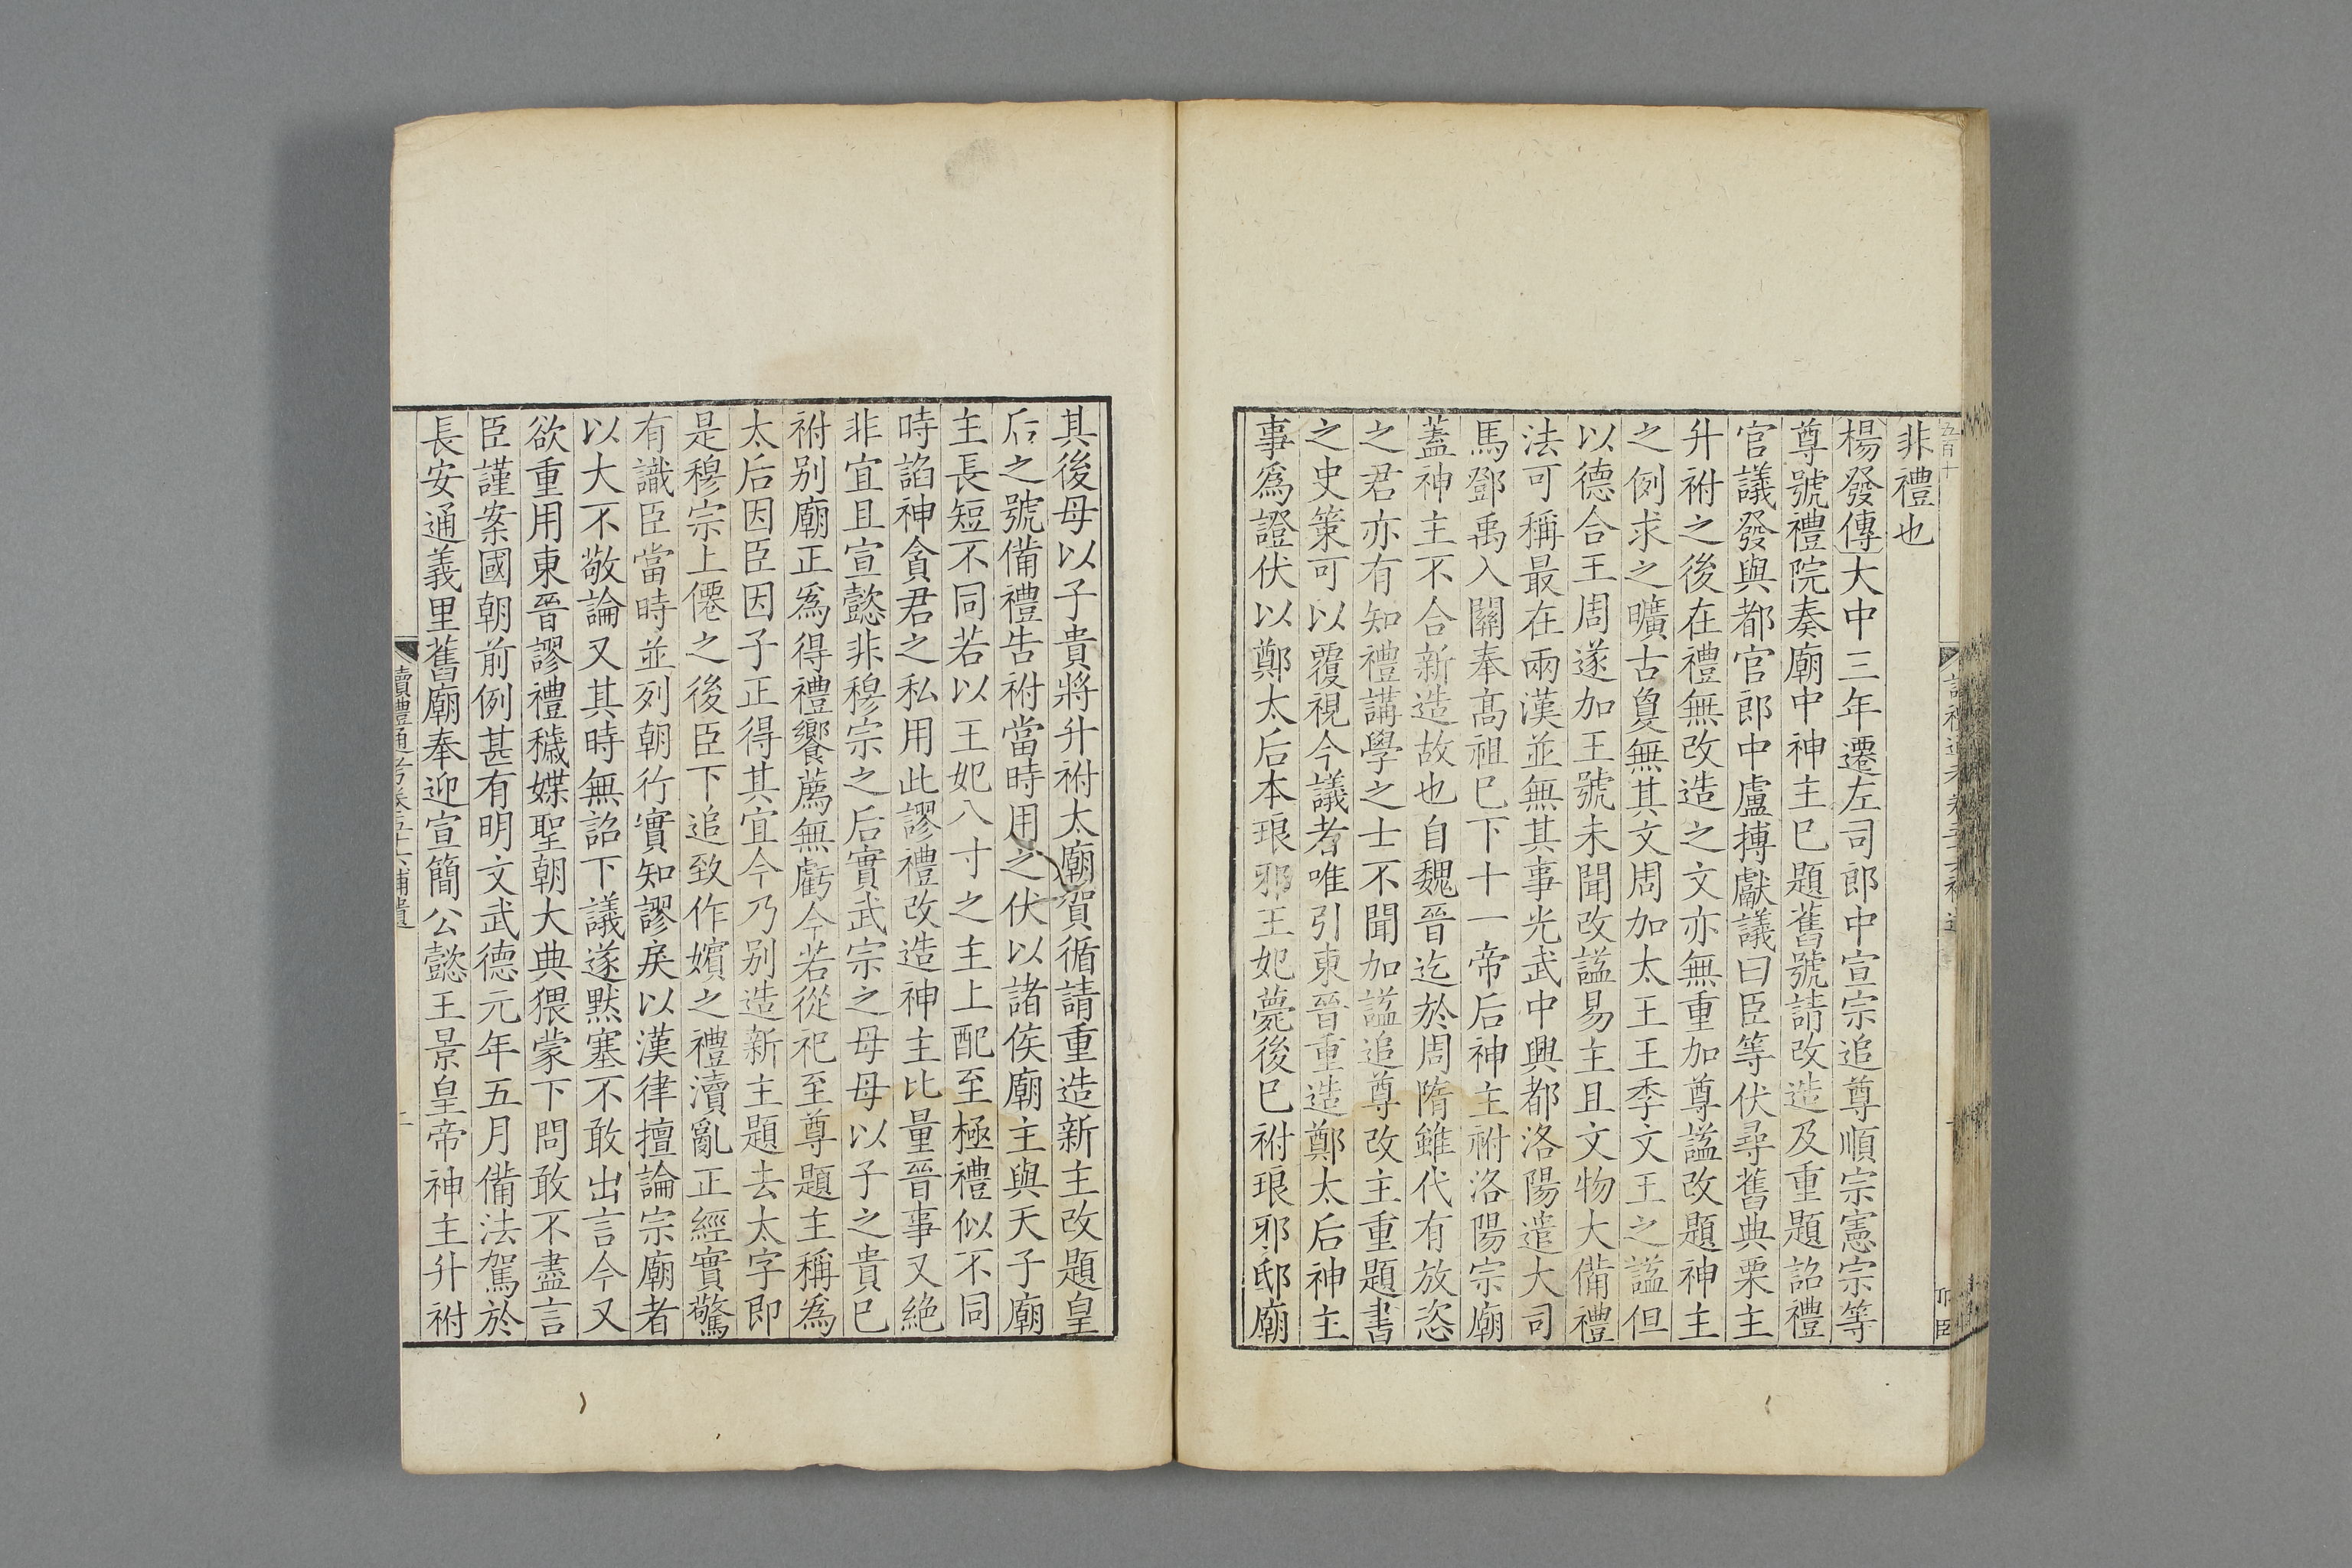 非禮也
楊發傳大中三年遷左司郎中宣宗追尊順宗憲宗等
尊號禮院奏廟中神主巳題舊號請改造及重題詔禮
官議發與都官郎中盧搏獻議曰臣等伏尋舊典栗主
升祔之後在禮無改造之文亦無重加尊謚改題神主
之例求之曠古敻無其文周加太王王季文王之謚但
以德合王周遂加王號未聞改謚易主且文物大備禮
法可稱最在兩漢並無其事光武中興都洛陽遣大司
馬鄧禹入關奉髙祖巳下十一帝后神主祔洛陽宗廟
蓋神主不合新造故也自魏晉迄於周隋雖代有放恣
之君亦有知禮講學之士不聞加謚追尊改主重題書
之史策可以覆視今議者唯引東晉重造鄭太后神主
事爲證伏以鄭太后本琅邪王妃薨後巳祔琅邪邸廟
其後母以子貴將升祔太廟賀循請重造新主改題皇
后之號備禮告祔當時用之伏以諸侯廟主與天子廟
主長短不同若以王妃八寸之主上配至極禮似不同
時諂神貪君之私用此謬禮改造神主比量晉事又絕
非宜且宣懿非穆宗之后實武宗之母母以子之貴巳
祔别廟正爲得禮饗薦無虧今若從祀至尊題主稱爲
太后因臣因子正得其宜今乃别造新主題去太字即
是穆宗上僊之後臣下追致作嬪之禮瀆亂正經實驚
有識臣當時並列朝行實知謬戾以漢律擅論宗廟者
以大不敬論又其時無詔下議遂默塞不敢出言今又
欲重用東晉謬禮穢媟聖朝大典猥蒙下問敢不盡言
臣謹案國朝前例甚有明文武德元年五月備法駕於
長安通義里舊廟奉迎宣簡公懿王景皇帝神主升祔
讀禮通考卷五十六補遺